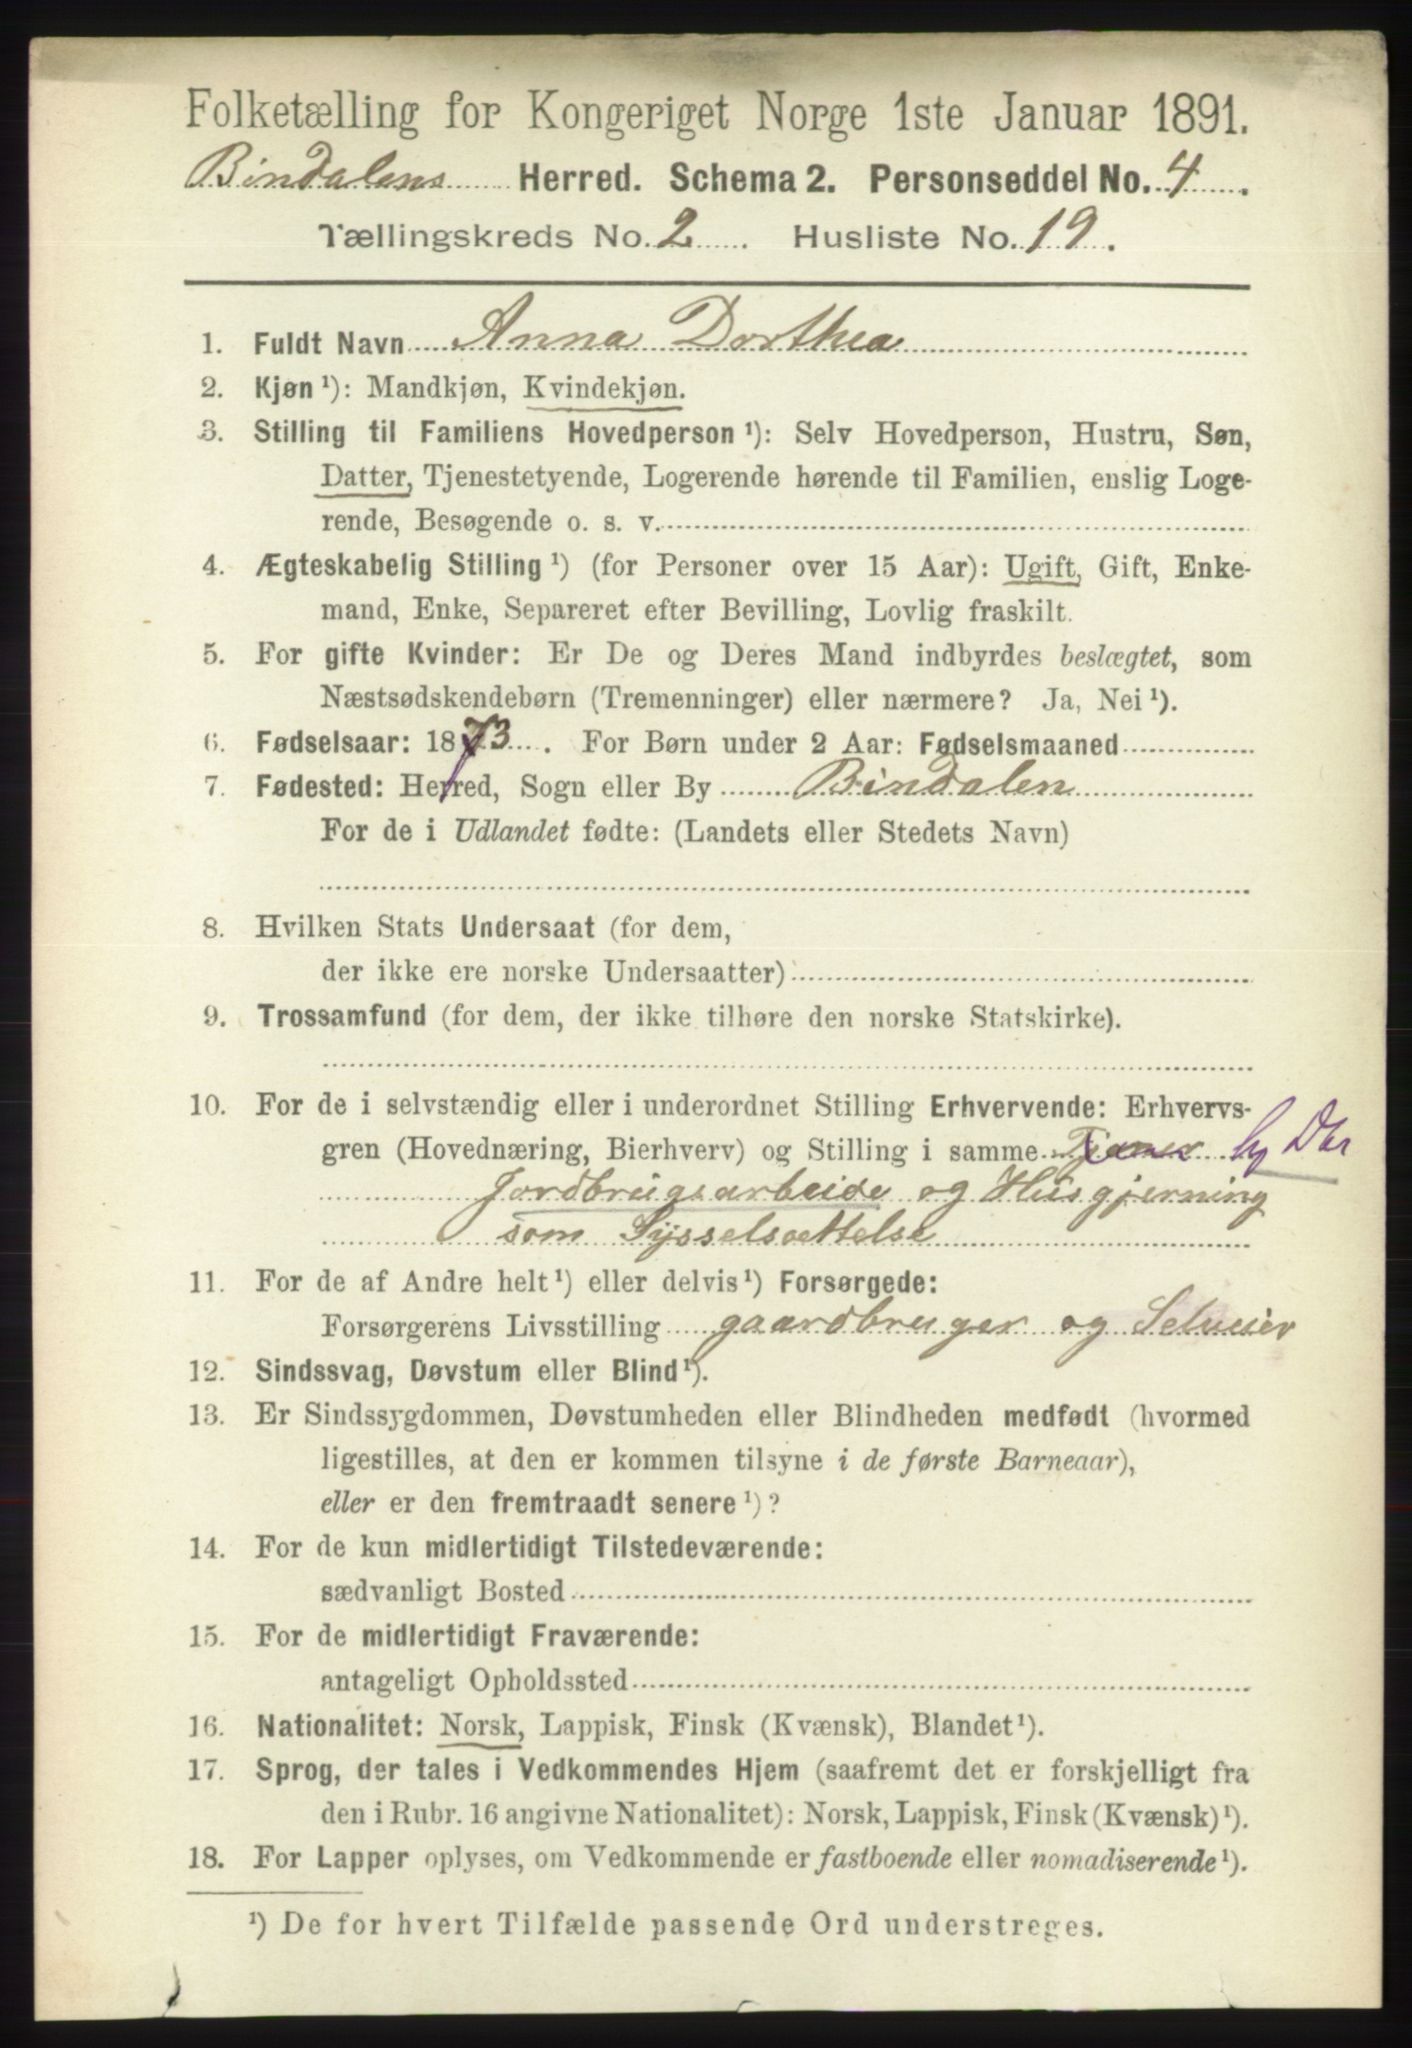 Folketælling for Kongeriget Norge 1ste Januar 1891.
Bindalens Herred. Schema 2. Personseddel No. 4.
Tællingskreds No. 2. Husliste No. 19.
1. Fuldt Navn Anna Dorthea
2. Kjøn ¹): Mandkjøn, Kvindekjøn.
3. Stilling til Familiens Hovedperson ¹): Selv Hovedperson, Hustru, Søn,
Datter, Tjenestetyende, Logerende hørende til Familien, enslig Loge-
rende, Besøgende o. s. v.
4. Ægteskabelig Stilling ¹) (for Personer over 15 Aar): Ugift, Gift, Enke-
mand, Enke, Separeret efter Bevilling, Lovlig fraskilt.
5. For gifte Kvinder: Er De og Deres Mand indbyrdes beslægtet, som
Næstsødskendebørn (Tremenninger) eller nærmere? Ja, Nei ¹).
6. Fødselsaar: 1873. For Børn under 2 Aar: Fødselsmaaned
7. Fødested: Herred, Sogn eller By Bindalen
For de i Udlandet fødte: (Landets eller Stedets Navn)
8. Hvilken Stats Undersaat (for dem,
der ikke ere norske Undersaatter)
9. Trossamfund (for dem, der ikke tilhøre den norske Statskirke).
10. For de i selvstændig eller i underordnet Stilling Erhvervende: Erhvervs-
gren (Hovednæring, Bierhverv) og Stilling i samme
Jordbrugsarbeide og Husgjerning
som Sysselsættelse
11. For de af Andre helt ¹) eller delvis ¹) Forsørgede:
Forsørgerens Livsstilling gaardbruger og Selveier
12. Sindssvag, Døvstum eller Blind ¹).
13. Er Sindssygdommen, Døvstumheden eller Blindheden medfødt (hvormed
ligestilles, at den er kommen tilsyne i de første Barneaar),
eller er den fremtraadt senere ¹)?
14. For de kun midlertidigt Tilstedeværende:
sædvanligt Bosted
15. For de midlertidigt Fraværende:
antageligt Opholdssted
16. Nationalitet: Norsk, Lappisk, Finsk (Kvænsk), Blandet ¹).
17. Sprog, der tales i Vedkommendes Hjem (saafremt det er forskjelligt fra
den i Rubr. 16 angivne Nationalitet): Norsk, Lappisk, Finsk (Kvænsk) ¹).
18. For Lapper oplyses, om Vedkommende er fastboende eller nomadiserende ¹).
¹) De for hvert Tilfælde passende Ord understreges.